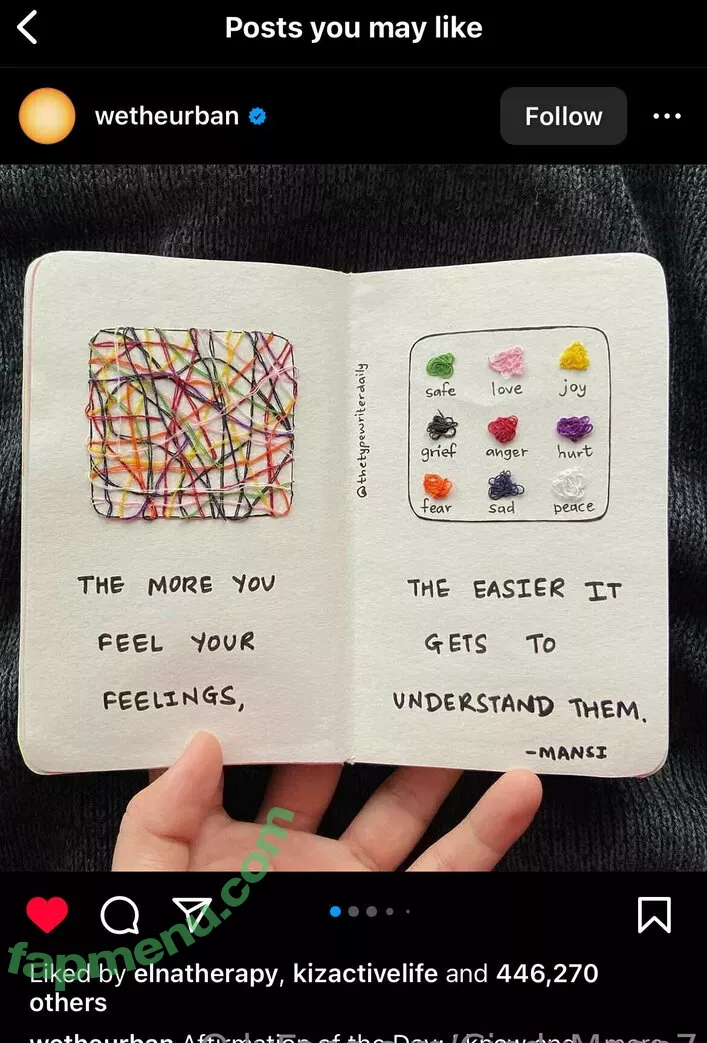 Posts you may like
wetheurban
Follow
@thetypewriterdaily
safe love joy
grief anger hurt
fear sad peace
THE MORE YOU
FEEL YOUR
FEELINGS,
THE EASIER IT
GETS TO
UNDERSTAND THEM.
-MANSI
fapmenu.com
Liked by elnatherapy, kizactivelife and 446,270
others
wetheurban Affirmation of the Day: